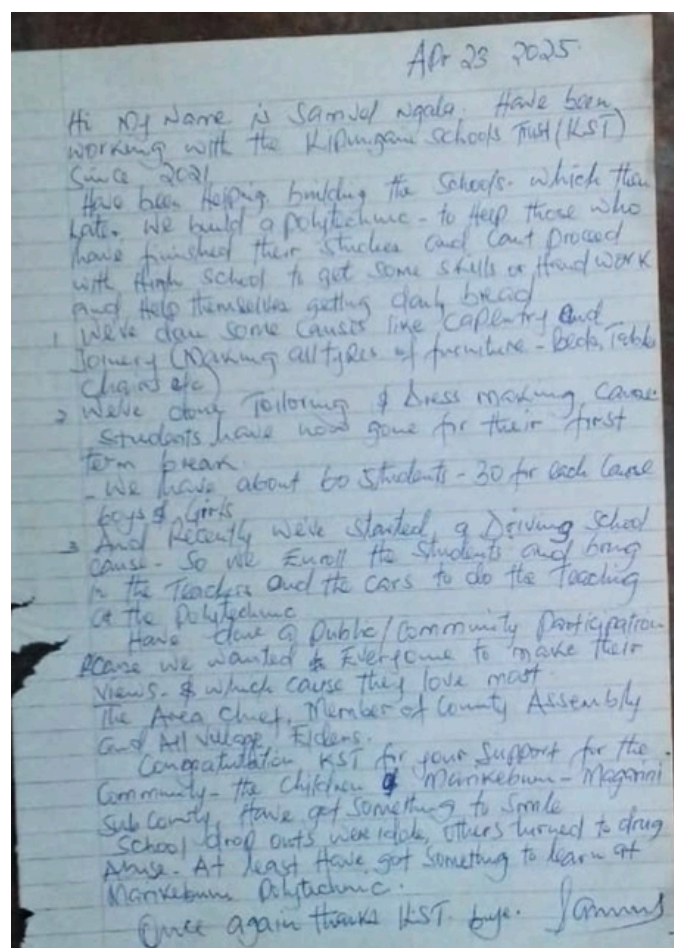 Apr 23 2025.
Hi My Name is Samuel Ngala. Have been
working with the Kipungani Schools Trust (KST)
Since 2021
Have been Helping building the Schools. which then
Later we build a polytechnic - to Help those who
have finished their studies and Cant Proceed
with High School to get some skills or Hand work
and Help themselves getting daily bread
1 We've dan some Causis like Capentry and
Joinery (Making all types of furniture - Beds, Table
Chairs etc)
2 We've done Tailoring & Dress making Cause.
Students have now gone for their first
term break.
- We have about 60 Students - 30 for each Cause
boys & Girls
3 And Recently We've started a Driving School
cause - So we Enroll the Students and bring
in the Teachers and the cars to do the Teaching
at the Polytechnic
Have done a Public/Community Participation
we wanted Everyone to make their
Views. & which cause they love most.
The Area Chief, Member of County Assembly
and All Village Elders.
KST for your Support for the
Community - the Children of Marikebuni - Magarini
Sub County, Have got Something to Smile
School drop outs were idole, others turned to drug
Abuse. At least Have got Something to learn at
Marikebuni Polytechnic.
Once again thanks KST. bye.